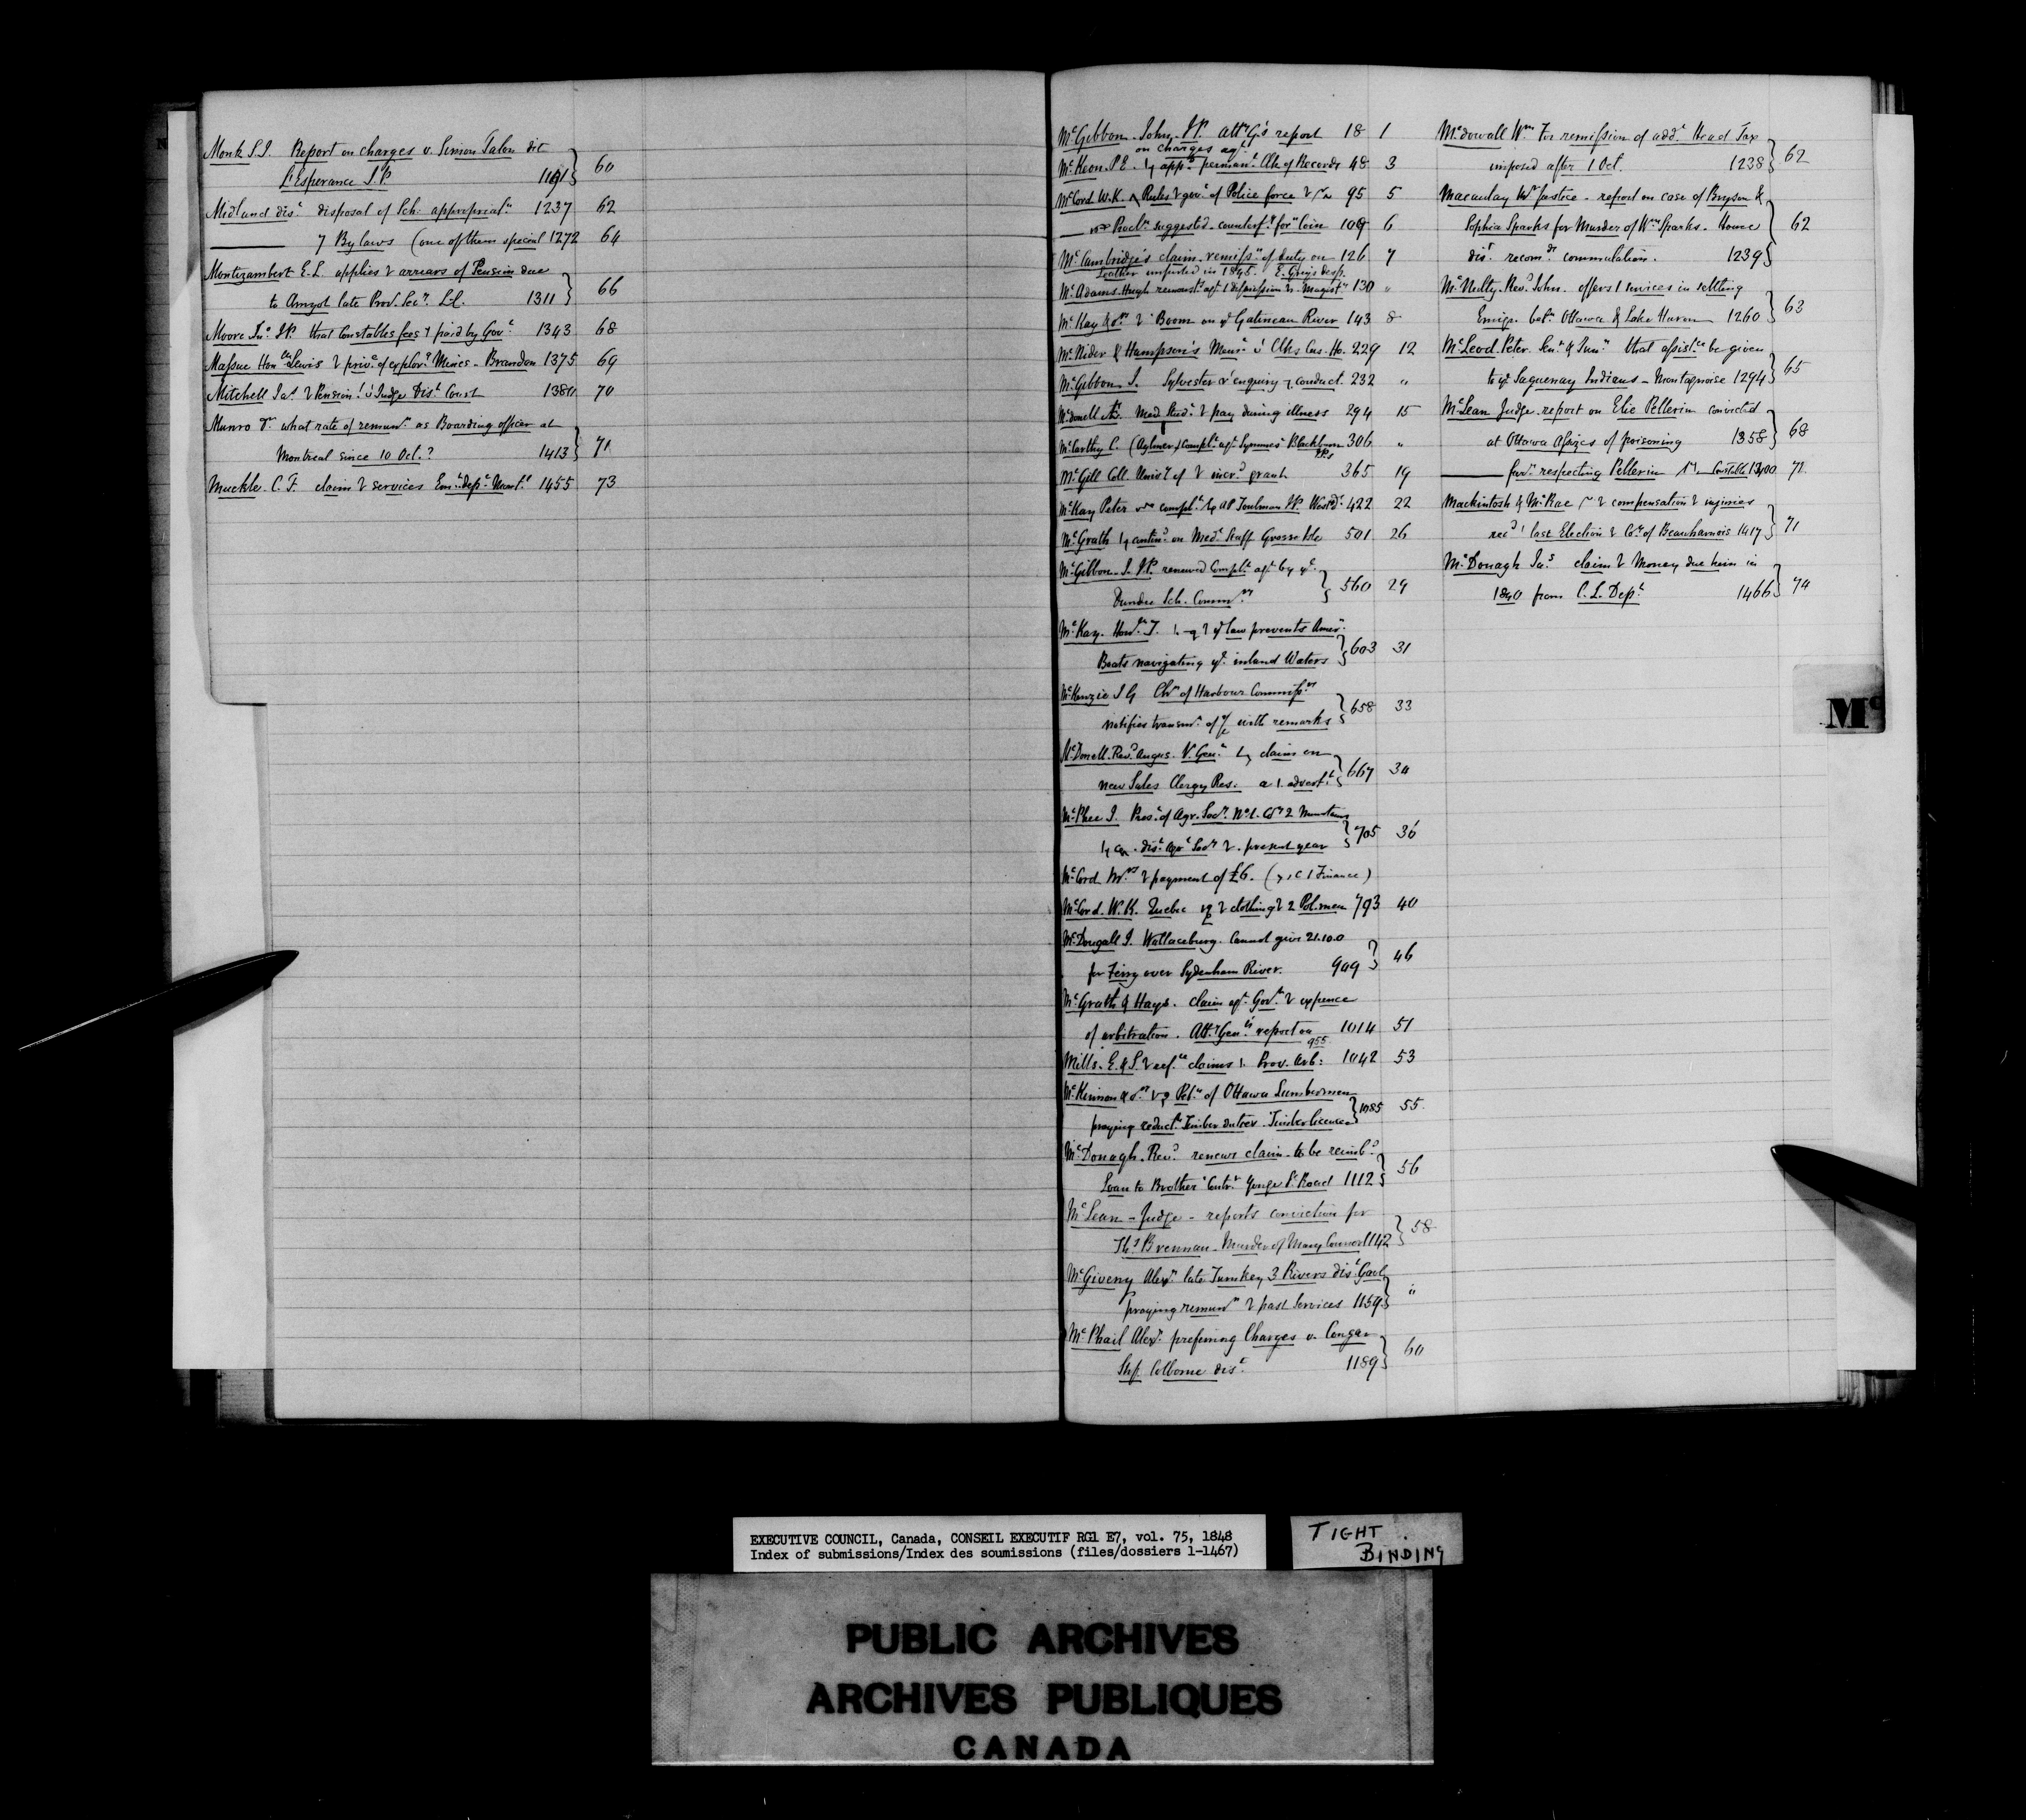 Monk S.J. Report on charges v. Simon Talon dit
L'Esperance J.P. 1191 60
Midland dist disposal of Sch. appropriatn 1237 62
7 By laws (one of them special 1272 64
Montizambert E.L. applies arrears of Pension due
to Amyot late Prov. Secy L.C. 1311 66
Moore Jno JP. that Constables fees paid by Govt 1343 68
Massue Hon Lewis & priv. of explorg Mines - Brandon 1375 69
Mitchell Jas Pension Judge Dist Court 1380 70
Munro Dr what rate of remunn as Boarding officer at
Montreal since 10 Oct.? 1413 71
Muckle C.F. claim services Emt Dept Montl 1455 73
McGibbon John J.P. Atty G's report 18 1
on charges agt
McKeon P.E. appt permant Clk of Records 48 3
McCord W.K. Rules govt of Police force 95 5
Procln suggested counterft forn Coin 109 6
McCambridge's claim remissn of duty on 126 7
leather imported in 1845. E. Grey's desp.
McAdams Hugh remonsts agt dismission Magist 130 "
McKay & ors Boom on ye Gatineau River 143 8
McNider & Hampson's Meml Clks Cus. Ho. 229 12
McGibbon J. Sylvester enquiry conduct 232 "
McDonell Med. Stud. pay during illness 294 15
McCarthy C. (Aylmer) Complt agt Symmes Blackburn 306 "
JPs
McGill Coll. Univy of incrd grant 365 19
McKay Peter complt Toulman J.P. 422 22
McGrath contind on Medl Staff Grosse Isle 501 26
McGibbon J. J.P. renewed Complt agt
Dundee Sch. Commrs 560 29
McKay Honble T. law prevents Amer.
Boats navigating ye inland Waters 603 31
McKenzie J G Chn of Harbour Commissrs
notifies transmn of with remarks 658 33
McDonell Revd Angus V. Genl claim on
new Sales Clergy Res. advert 667 34
McPhee J. Prest of Agr. Socy No 1. Co 2 Mountains
dist Agr Socy present year 705 36
McCord Mrs payment of £6. ( Finance)
McCord W.K. Quebec clothing 2 Pol.men 793 40
McDougall J. Wallaceburg. Cannot give 21.10.0
for Ferry over Sydenham River. 949 46
McGrath & Hays. claim agt Govt expence
of arbitration. Atty Genl's report on 1014 51
955
Mills E & S. refce claims Prov. Arb: 1042 53
McKinnon & ors Petn of Ottawa Lumbermen
praying reductn Timber duties Timber licences 1085 55
McDonagh Revd renews claim to be reimbd
Loan to Brother Contr Yonge St Road 1112 56
McLean - Judge - reports conviction for
Ths Brennan - Murder of Mary Connor 1142 58
McGiveny Alexr late Turnkey 3 Rivers dist Gaol
praying remunn past Services 1159 "
McPhail Alexr preferring Charges v. Conger
Shff Colborne dist 1189 60
McDowall Wm For remission of addl Head Tax
imposed after 1 Oct. 1238 62
Macaulay Mr Justice - report on case of Bryson &
Sophia Sparks for Murder of Wm Sparks - Home
dist recomdg commutation. 1239 62
McNulty Revd John. offers services in settling
Emigs betn Ottawa & Lake Huron 1260 63
McLeod Peter Senr & Junr that assistce be given
to ye Saguenay Indians - Montagnoise 1294 65
McLean Judge report on Elie Pellerin convicted
at Ottawa Assizes of poisoning 1358 68
furr respecting Pellerin Constable 1400 71
Mackintosh & McRae compensation injuries
recd last Election Co. of Beauharnois 1417 71
McDonagh Jas claim Money due him in
1840 from C. L. Dept 1466 74
Mc
EXECUTIVE COUNCIL, Canada, CONSEIL EXECUTIF RG1 E7, vol. 75, 1848
Index of submissions/Index des soumissions (files/dossiers 1-1467)
TIGHT
BINDING
PUBLIC ARCHIVES
ARCHIVES PUBLIQUES
CANADA